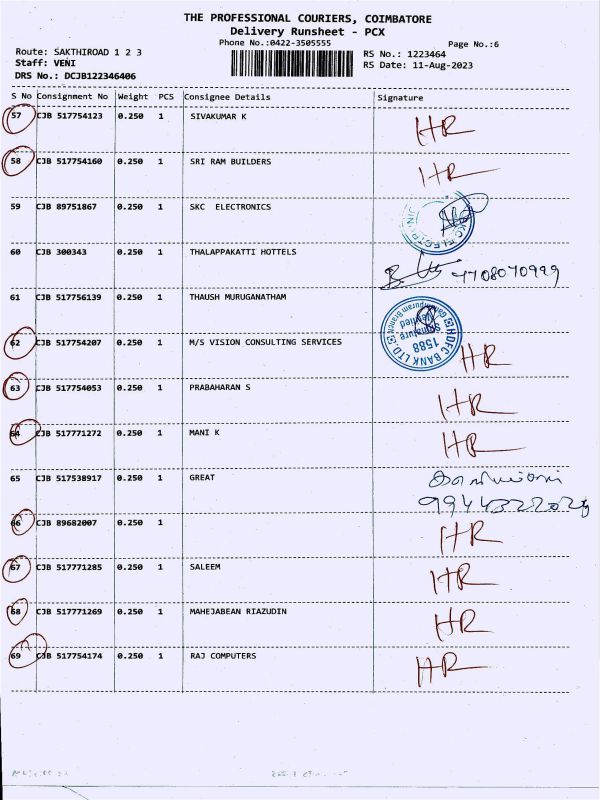 THE PROFESSIONAL COURIERS, COIMBATORE
Delivery Runsheet - PCX
Phone No.:0422-3505555
Page No.:6
Route: SAKTHIROAD 1 2 3
RS No.: 1223464
Staff: VENI
RS Date: 11-Aug-2023
DRS No.: DCJB122346406
S No Consignment No Weight PCS Consignee Details Signature
57 CJB 517754123 0.250 1 SIVAKUMAR K HR
58 CJB 517754160 0.250 1 SRI RAM BUILDERS HR
59 CJB 89751867 0.250 1 SKC ELECTRONICS
60 CJB 300343 0.250 1 THALAPPAKATTI HOTTELS
61 CJB 517756139 0.250 1 THAUSH MURUGANATHAM
HDFC BANK LTD.
Gandhipuram Branch
Signature Verified
1588
62 CJB 517754207 0.250 1 M/S VISION CONSULTING SERVICES HR
63 CJB 517754053 0.250 1 PRABAHARAN S HR
64 CJB 517771272 0.250 1 MANI K HR
65 CJB 517538917 0.250 1 GREAT
66 CJB 89682007 0.250 1 HR
67 CJB 517771285 0.250 1 SALEEM HR
68 CJB 517771269 0.250 1 MAHEJABEAN RIAZUDIN HR
69 CJB 517754174 0.250 1 RAJ COMPUTERS HR